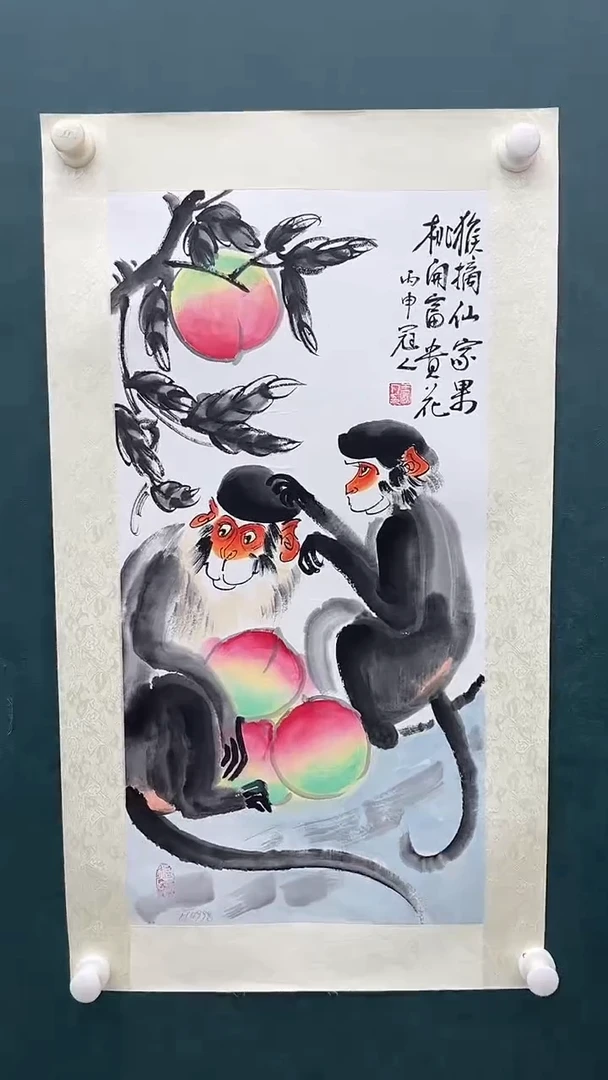 猴摘仙家果
桃开富贵花
丙申冠人